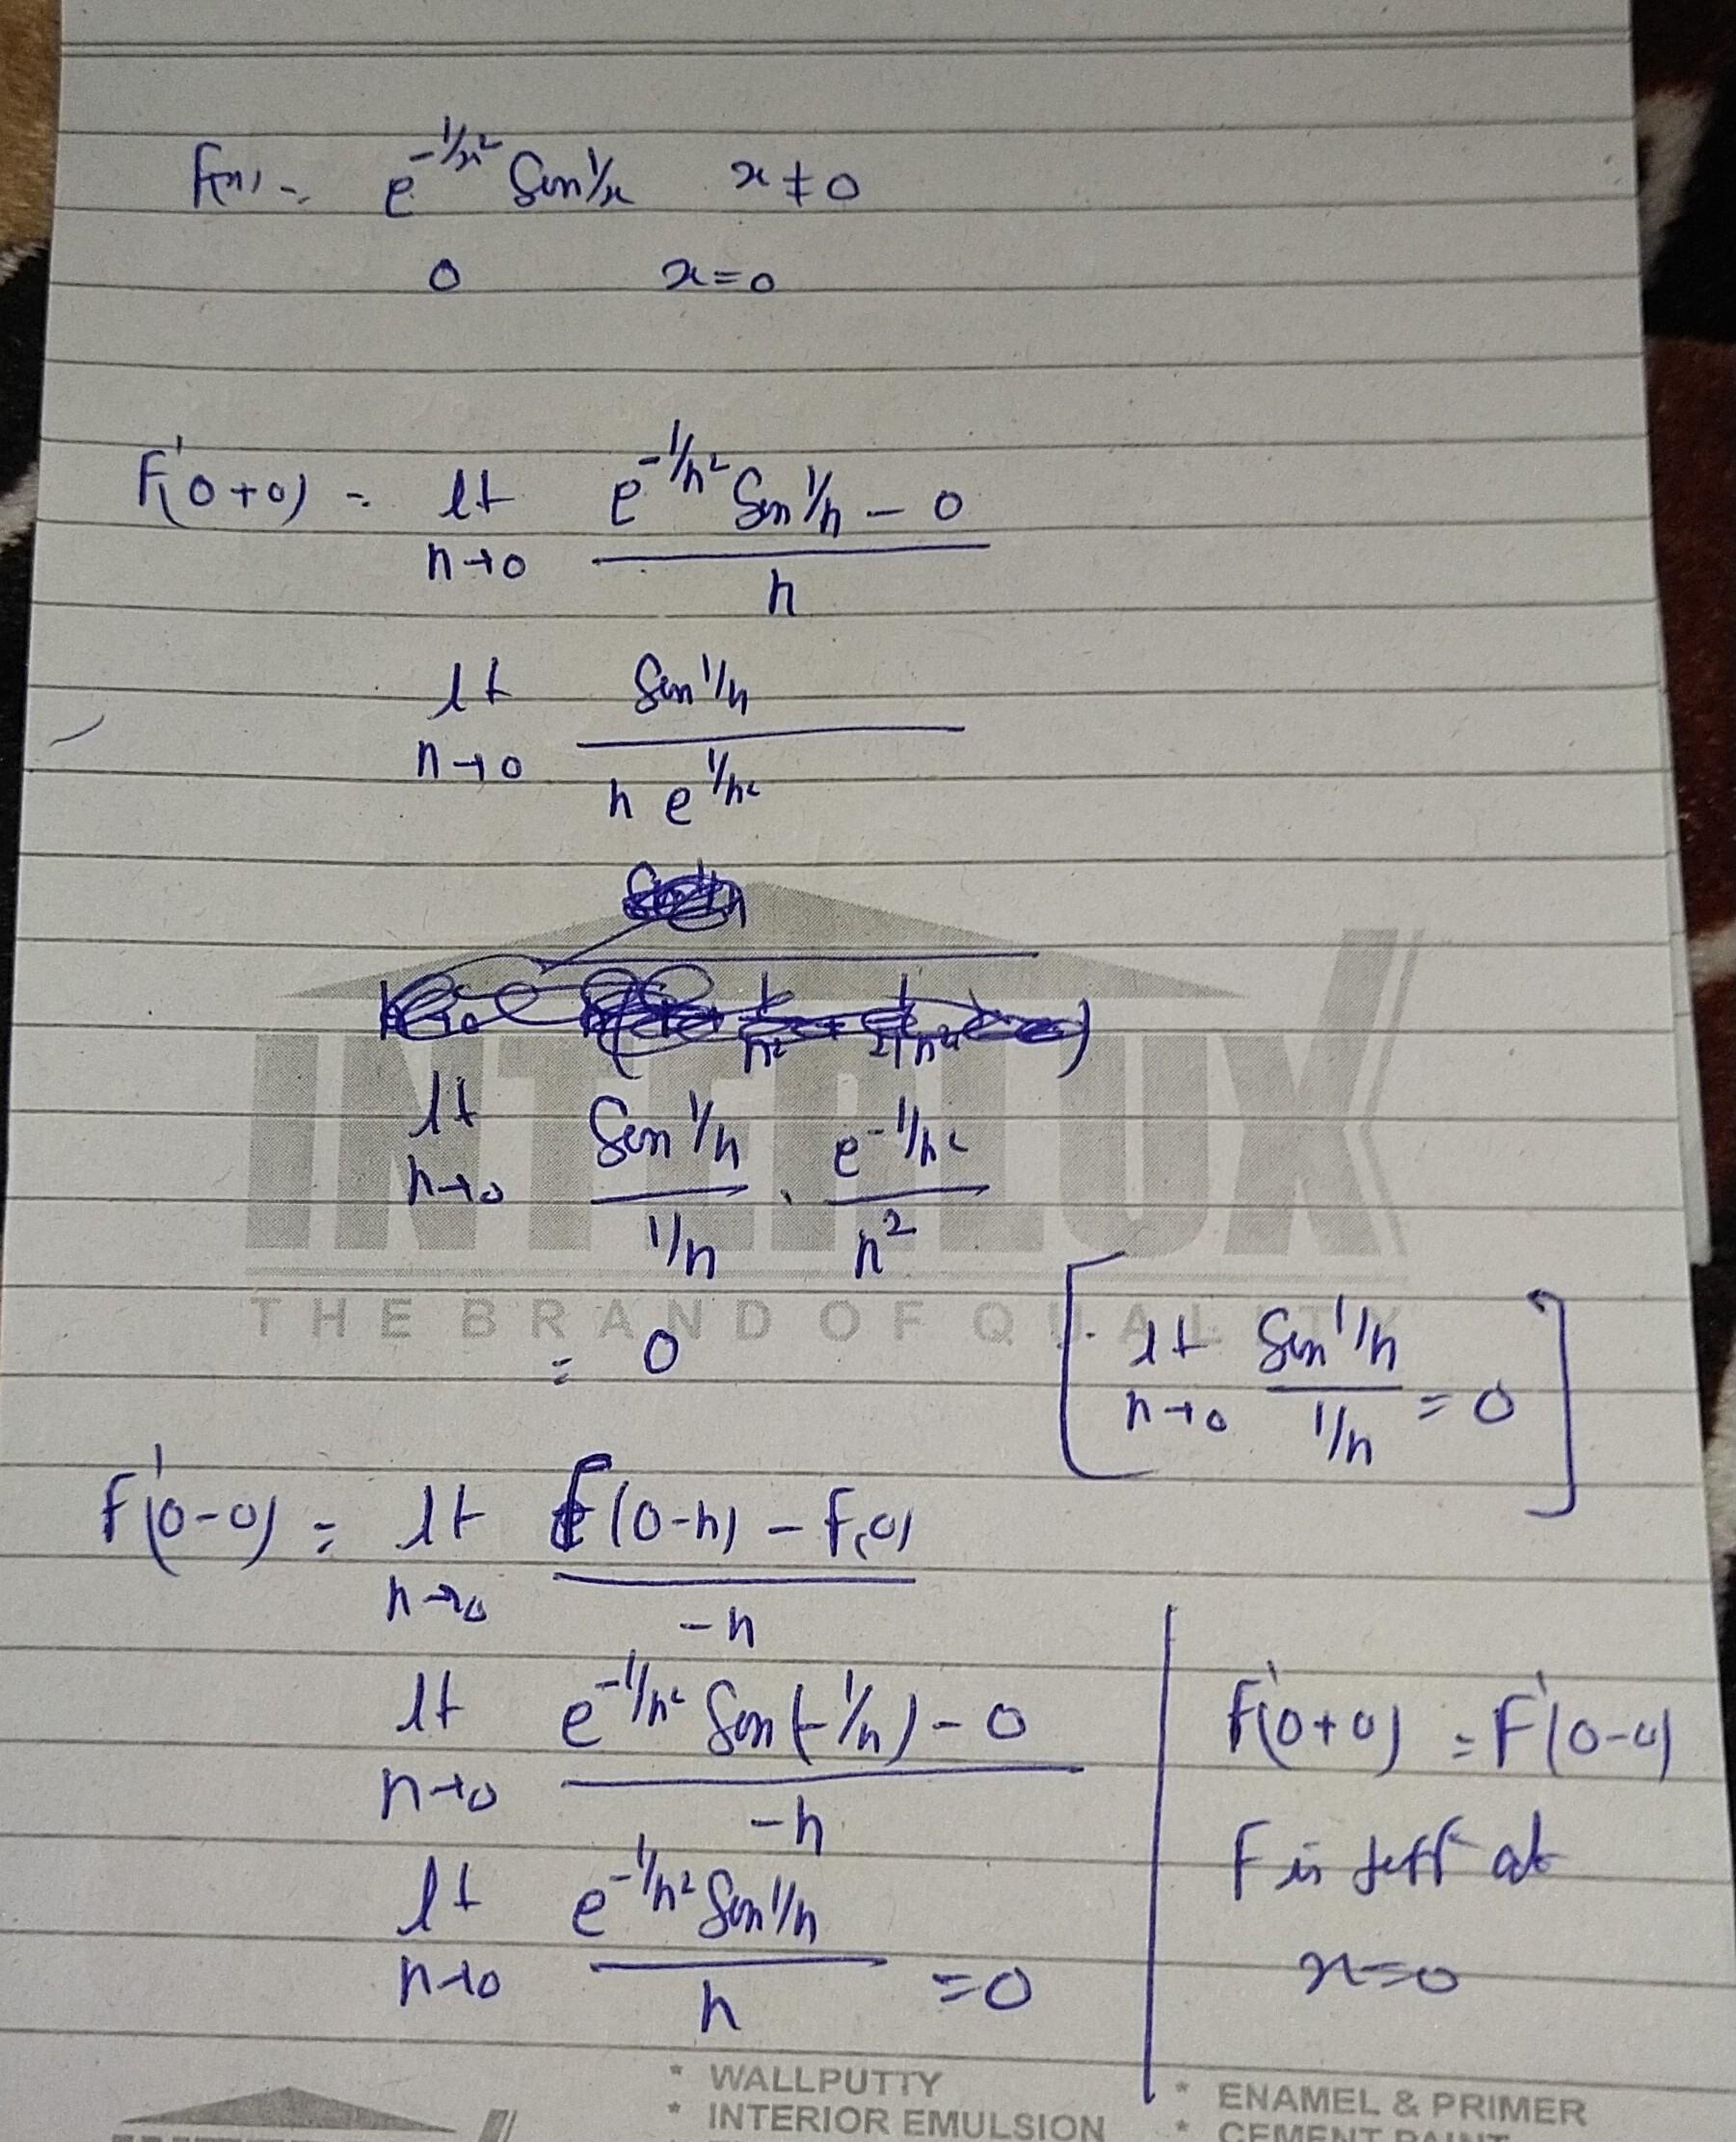 f(x) = e^{-1/x²} Sin 1/x x ≠ 0
0 x = 0
F'(0+0) = lt e^{-1/h²} Sin 1/h - 0
h→0 h
lt Sin 1/h
h→0 h e^{1/h²}
lt Sin 1/h . e^{-1/h²}
h→0 1/h h²
= 0
[∵ lt Sin 1/h
h→0 1/h = 0]
F'(0-0) = lt f(0-h) - f(0)
h→0 -h
lt e^{-1/h²} Sin(-1/h) - 0
h→0 -h
lt e^{-1/h²} Sin 1/h
h→0 h = 0
F'(0+0) = F'(0-0)
F is diff at
x=0
INTERLUX
THE BRAND OF QUALITY
* WALLPUTTY
* INTERIOR EMULSION
* ENAMEL & PRIMER
* CEMENT PAINT